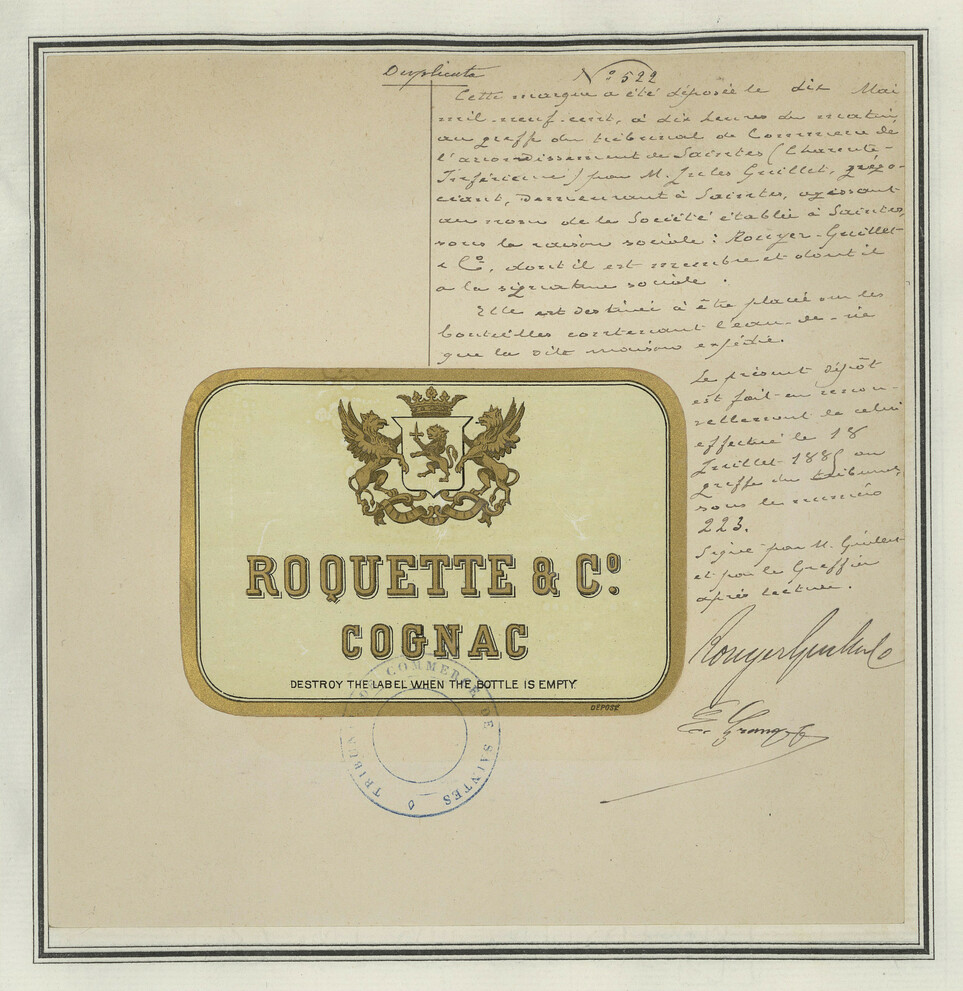 Duplicata
N° 522
Cette marque a été déposée le dix Mai
mil-neuf-cent, à dix heures du matin,
au greffe du tribunal de Commerce de
l'arrondissement de Saintes (Charente-
Inférieure) par M. Jules Guillet, négo-
ciant, demeurant à Saintes, agissant
au nom de la Société établie à Saintes,
sous la raison sociale: Rouyer-Guillet
& Cº, dont il est membre et dont il
a la signature sociale.
Elle est destinée à être placée sur les
bouteilles contenant l'eau-de-vie
que la dite maison expédie.
Le présent dépôt
est fait en renou-
vellement de celui
effectué le 18
Juillet 1885 au
greffe du tribunal,
sous le numéro
223.
Signé par M. Guillet
et par le Greffier
après lecture.
Rouyer Guillet & Co
ROQUETTE & Cº.
COGNAC
DESTROY THE LABEL WHEN THE BOTTLE IS EMPTY
DÉPOSÉ
TRIBUNAL DE COMMERCE DE SAINTES